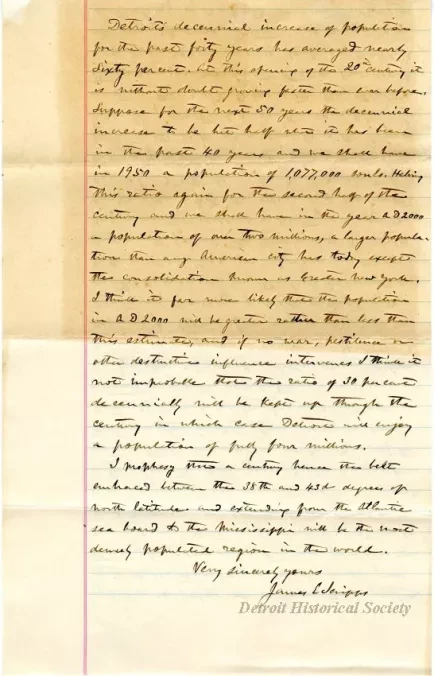 Detroit's decennial increase of population
for the past forty years has averaged nearly
sixty per cent. At this opening of the 20th century it
is without doubt growing faster than ever before.
Suppose for the next 50 years the decennial
increase to be but half what it has been
in the past 40 years and we shall have
in 1950 a population of 1,077,000 souls. Halving
this ratio again for the second half of the
century and we shall have in the year A.D. 2000
a population of over two millions, a larger popula-
tion than any American city has today except
the consolidation known as Greater New York.
I think it far more likely that the population
in A.D. 2000 will be greater rather than less than
this estimate, and if no war, pestilence or
other destructive influence intervenes I think it
not improbable that the ratio of 30 per cent
decennially will be kept up through the
century in which case Detroit will enjoy
a population of fully four millions.
I prophesy that a century hence the belt
embraced between the 38th and 43d degrees of
north latitude and extending from the Atlantic
sea board to the Mississippi will be the most
densely populated region in the world.
Very sincerely yours
James E Scripps
Detroit Historical Society